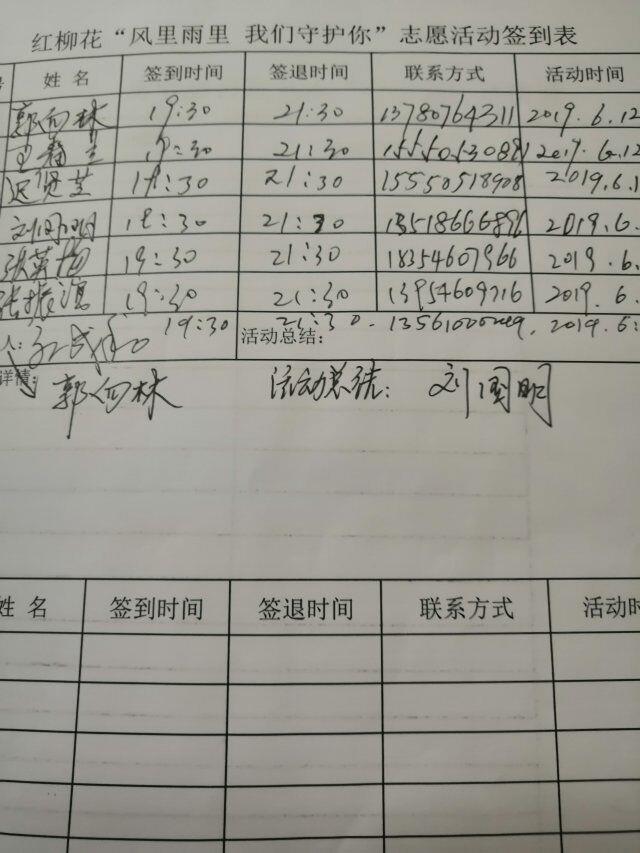 红柳花“风里雨里 我们守护你”志愿活动签到表
姓 名 签到时间 签退时间 联系方式 活动时间
郭向林 19:30 21:30 13780764311 2019.6.12
19:30 21:30 2019.6.12
迟贤芝 19:30 21:30 15550518908 2019.6.1
刘国明 19:30 21:30 2019.6.
张英梅 19:30 21:30 18354607966 2019.6.
张振海 19:30 21:30 13954609716 2019.6.
人: 19:30 21:30. 2019.6.
活动总结:
详情:
郭向林 活动总结: 刘国明
姓 名 签到时间 签退时间 联系方式 活动时